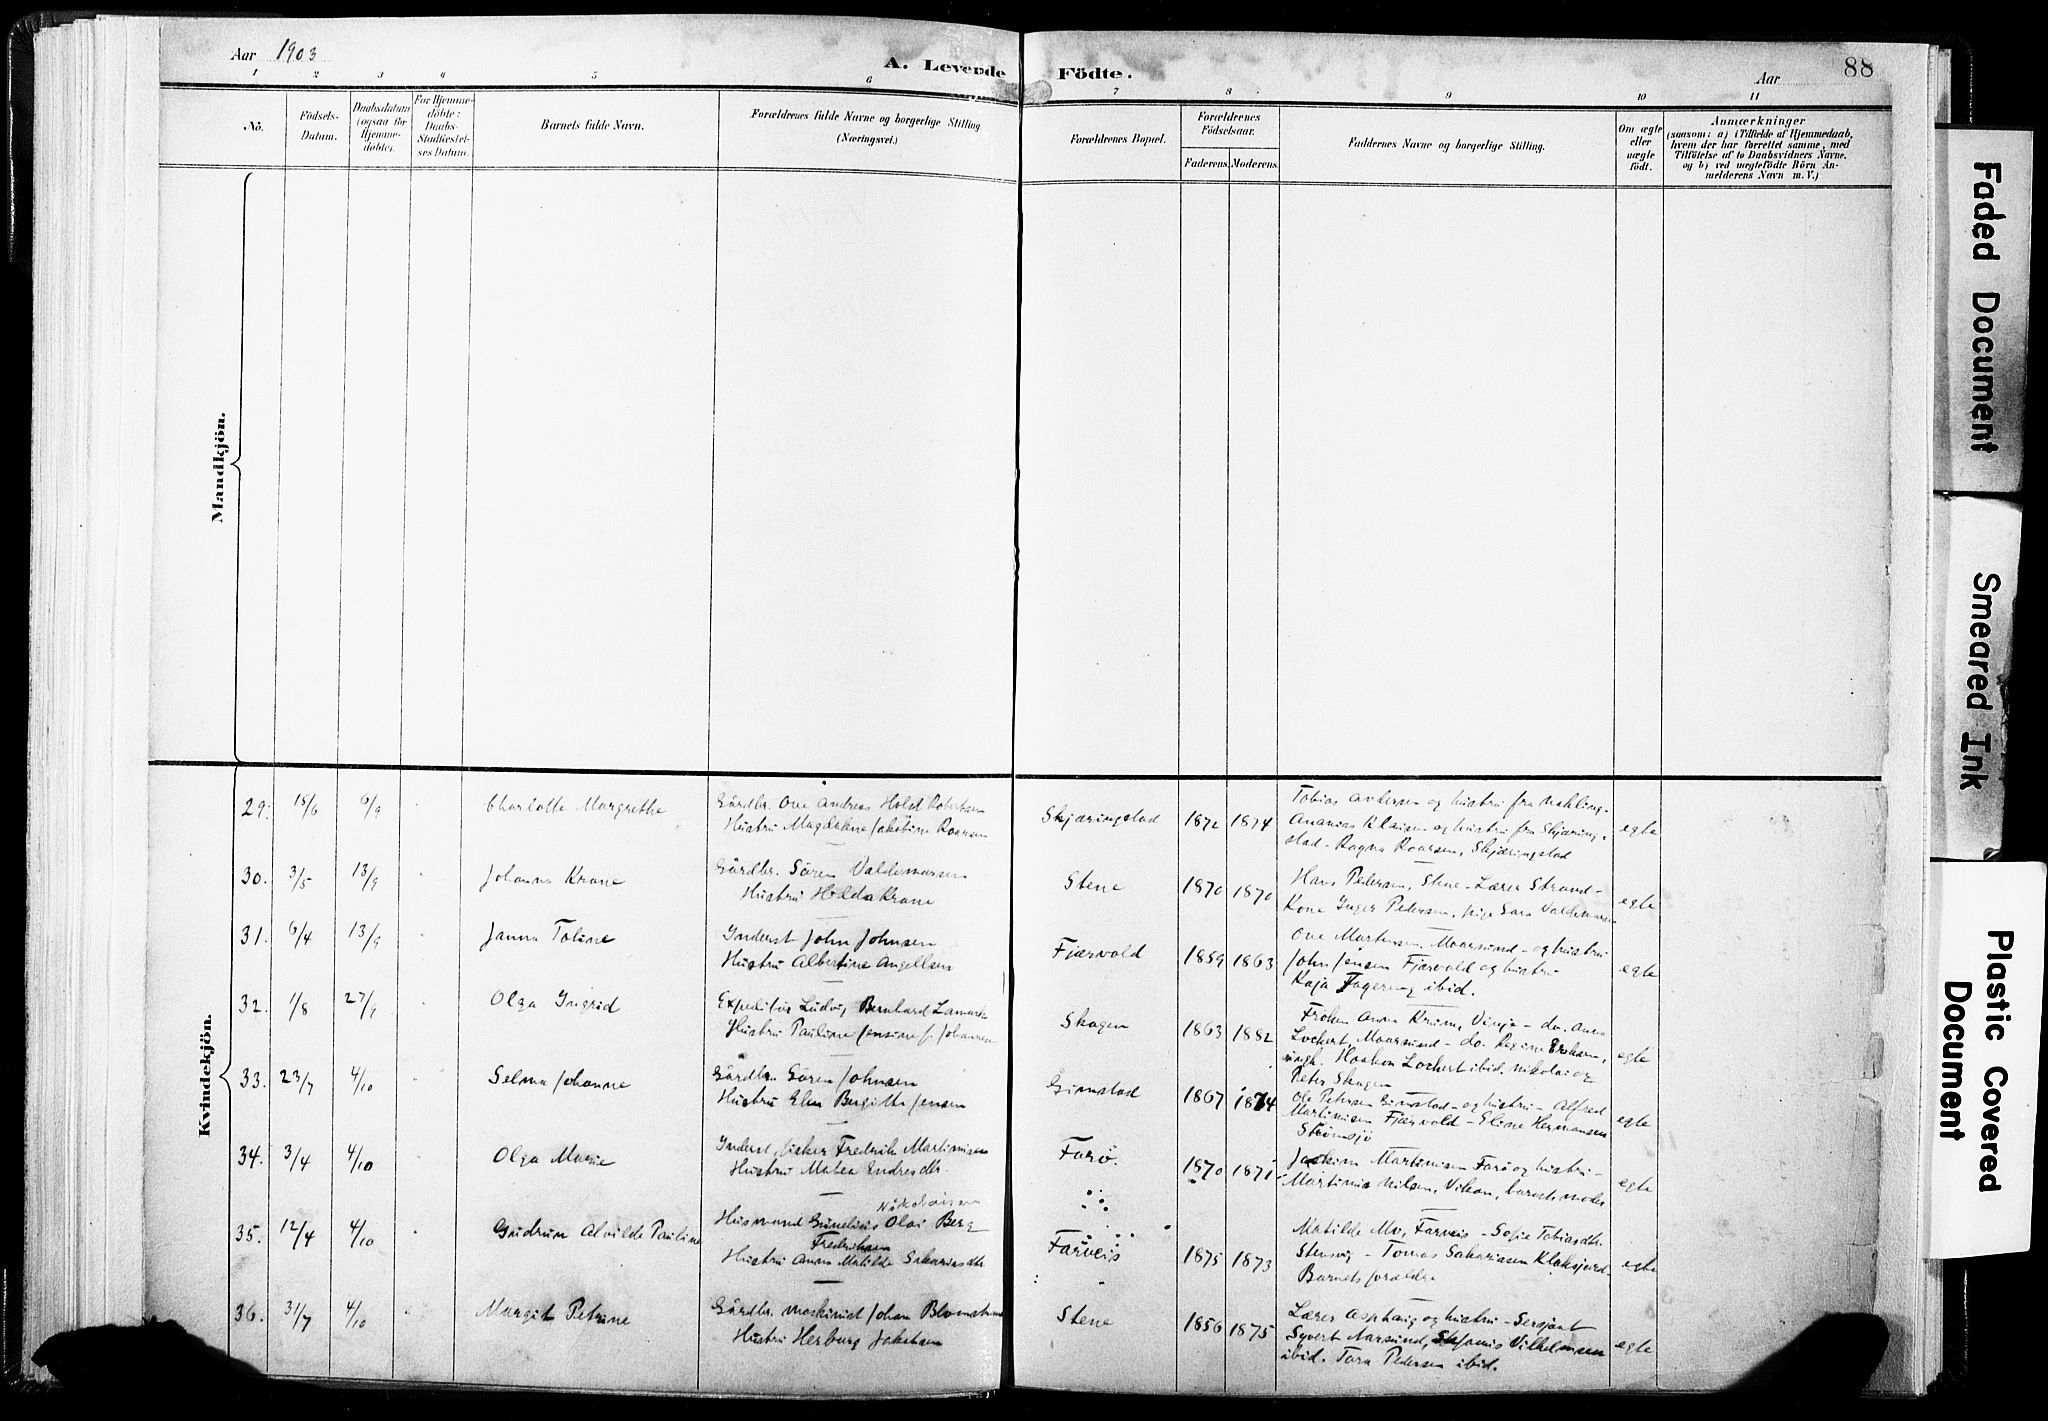 Aar 1903
A. Levende Födte.
Aar
88
1 2 3 4 5 6 7 8 9 10 11
No.
Födsels-Datum.
Daabsdatum (ogsaa for Hjemme-döbte).
For Hjemme-döbte: Daabs-Stadfæstel-ses Datum.
Barnets fulde Navn.
Forældrenes fulde Navne og borgerlige Stilling (Næringsvei.)
Forældrenes Bopæl.
Forældrenes Födselsaar.
Faderens. Moderens.
Faddernes Navne og borgerlige Stilling.
Om ægte eller uægte födt.
Anmærkninger
(saasom: a) i Tilfælde af Hjemmedaab,
hvem der har forrettet samme, med
Tilföielse af to Daabsvidners Navne,
og b) ved uægtefödte Börn An-
melderens Navn m. V.)
Mandkjön.
Kvindekjön.
29. 15/6 6/9 Charlotte Margrethe
Gårdbr. Ove Andreas Holst Robertsen
Hustru Magdalene Jakobine Roarsen
Skjæringstad 1872 1874
Tobias Andersen og hustru fra
Ananias Klausen og hustru fra Skjæring-
stad - Ragna Roarsen, Skjæringstad
egte
30. 3/5 13/9 Johanna Krane
Gårdbr. Sören Valdemarsen
Hustru Holda Krane
Stene 1870 1870
Hans Pedersen, Stene - Lærer Strand -
Kone Inger Pedersen, pige Sara Valdemarsen
egte
31. 6/4 13/9 Janna Toline
Inderst John Johnsen
Hustru Albertine Angellsen
Fjærvold 1859 1863
Ove Martensen, Maarsund - og hustru
John Jensen Fjærvold og hustru
Kaja Fagereng ibid.
egte
32. 1/8 27/9 Olga Ingrid
Expeditör Ludv. Bernhard Lamark
Hustru Pauline Jensine f. Johannesen
Skagen 1863 1882
Fröken Anna Krum, Vinje - do. Anna
Lochert, Maarsund - do. Regine
ungk. Haakon Lochert ibid. Nikolai og
Peter Skagen
egte
33. 23/7 4/10 Selma Johanne
Gårdbr. Sören Johnsen
Hustru Elen Bergitte Jensen
Gimstad 1867 1874
Ole Petersen Gimstad - og hustru - Alfred
Martinisen Fjærvold - Eline Hermansen
Strömsjö
egte
34. 3/4 4/10 Olga Marie
Inderst, fisker Fredrik Martinisen
Hustru Matea Endresdtr.
Farö. 1870 1871
Joakim Martinisen Farö og hustru -
Martinia Nilsen, Vikan, barnets moder
egte
35. 12/4 4/10 Gudrun Alvilde Pauline
Nikolaisen
Husmand Cornelius Olai Berg
Fredriksen
Hustru Anna Matilde Sakariasdtr.
Farveis 1875 1873
Matilde Mo, Farveis - Sofie Tobiasdtr.
Stensvig - Tomas Sakariasen Klaksjord -
Barnets forældre
egte
36. 31/7 4/10 Margit Petrine
Gårdbr. maskinist Johan Blomstrand
Hustru Herborg Jakobsen
Stene 1856 1875
Lærer Asphaug og hustru - Sersjant
Syvert Aarsund, Vilhelmsen
ibid. Tora Pedersen ibid.
egte
Faded Document
Smeared Ink
Plastic Covered
Document